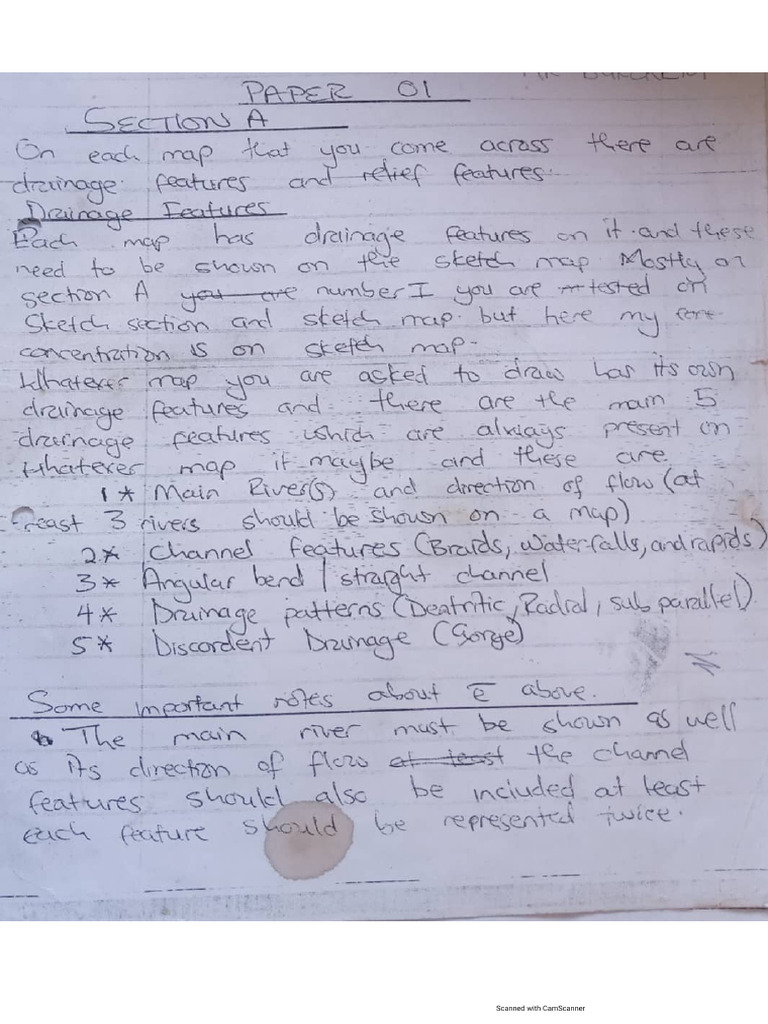 PAPER 01
SECTION A
On each map that you come across there are
drainage features and relief features.
Drainage Features
Each map has drainage features on it and these
need to be shown on the sketch map. Mostly on
section A you are number I you are tested on
Sketch section and sketch map. but here my
concentration is on sketch map.
Whatever map you are asked to draw has its own
drainage features and there are the main 5
drainage features which are always present on
whatever map it maybe and these are.
1* Main River(s) and direction of flow (at
least 3 rivers should be shown on a map)
2* Channel features (Braids, Waterfalls, and rapids)
3* Angular bend / straight channel
4* Drainage patterns (Deatritic, Radial, sub parallel)
5* Discordent Drainage (Gorge)
Some important notes about ē above.
The main river must be shown as well
as its direction of flow at least the channel
features should also be included at least
each feature should be represented twice.
Scanned with CamScanner